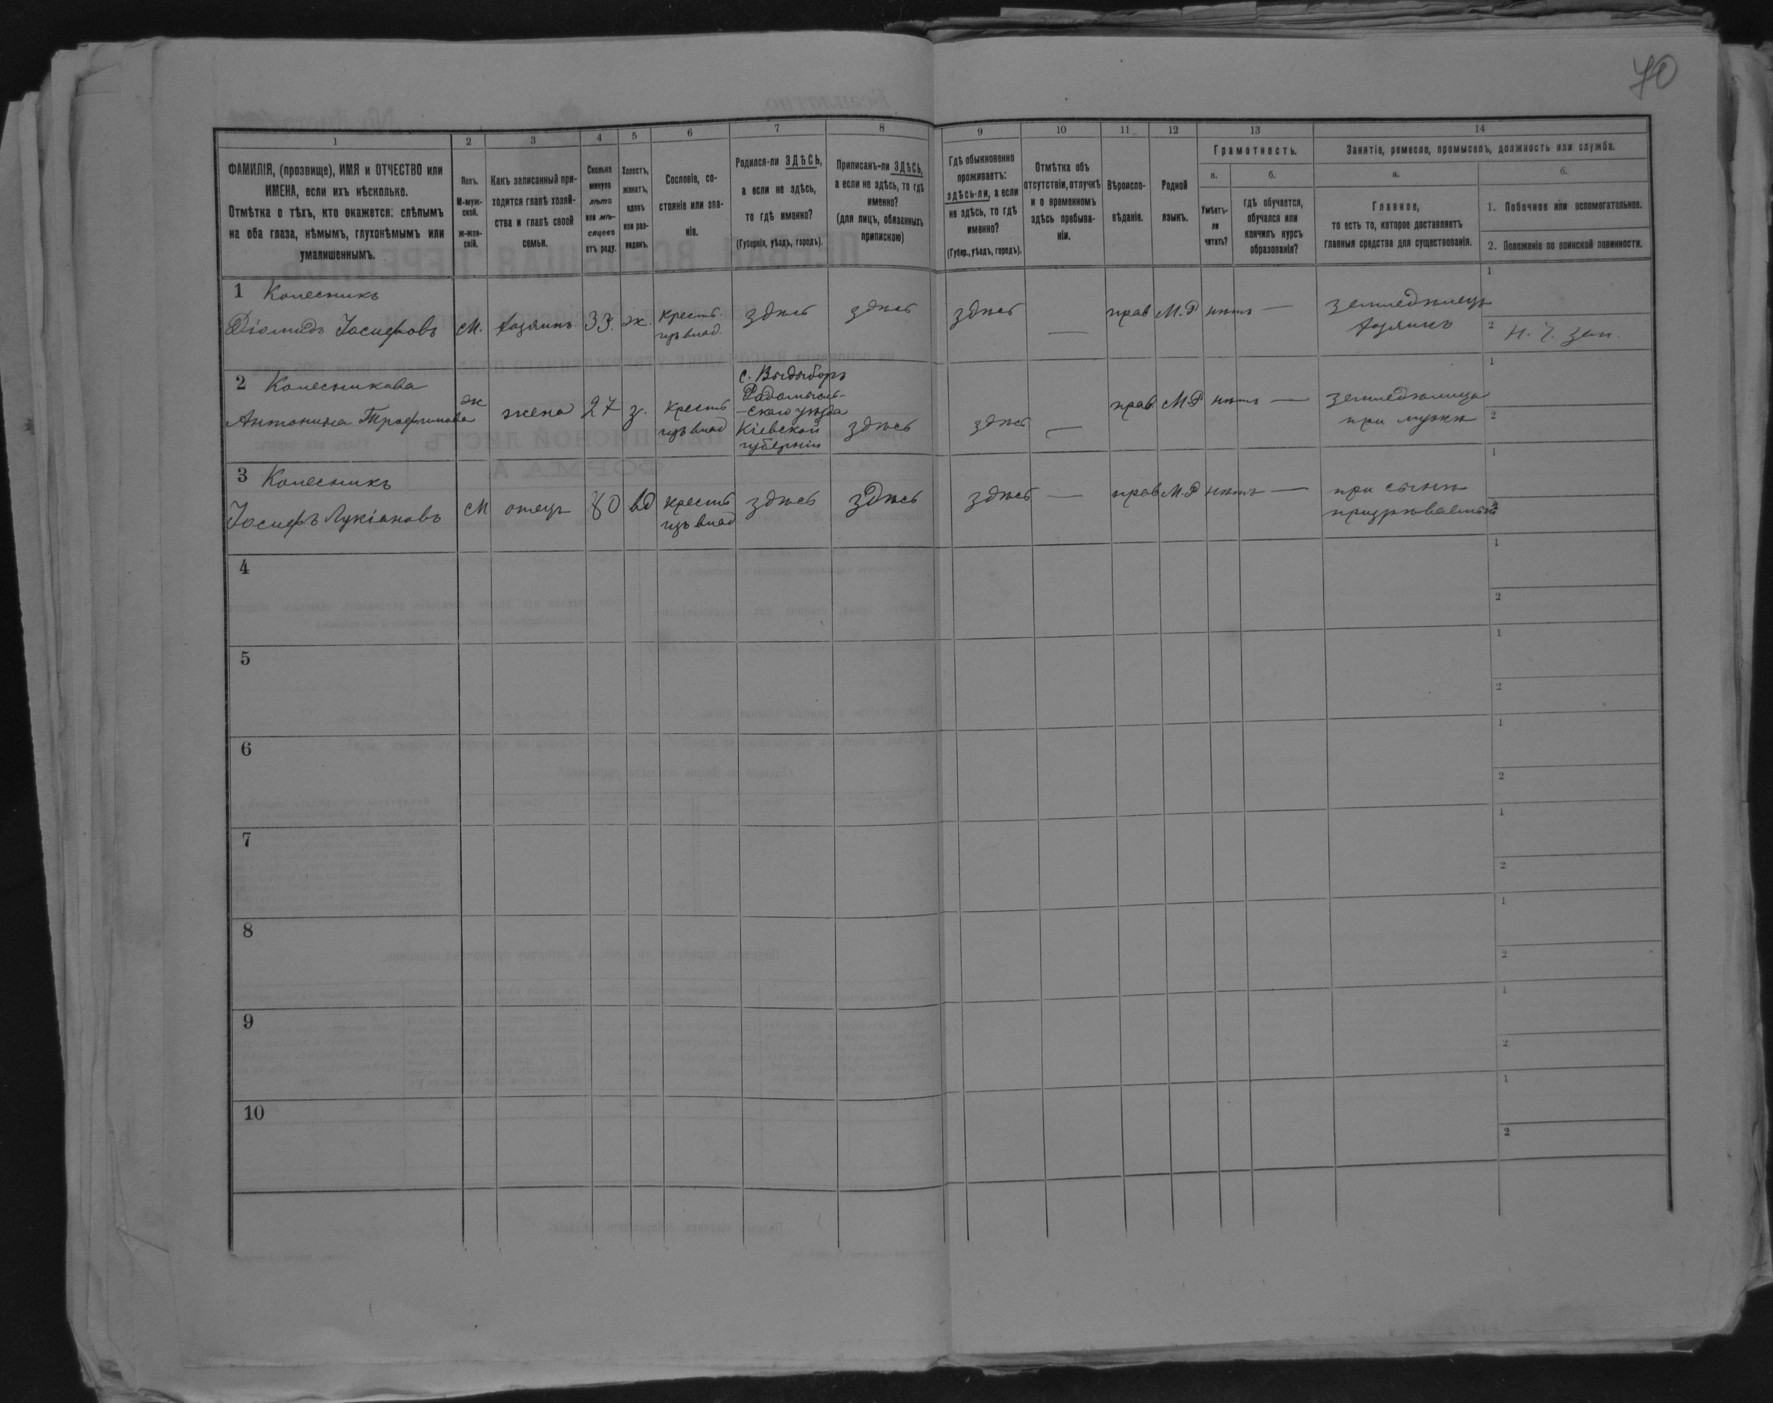 70
1
2
3
4
5
6
7
8
9
10
11
12
13
14
ФАМИЛІЯ, (прозвище), ИМЯ и ОТЧЕСТВО или
ИМЕНА, если ихъ нѣсколько.
Отмѣтка о тѣхъ, кто окажется: слѣпымъ
на оба глаза, нѣмымъ, глухонѣмымъ или
умалишеннымъ.
Полъ.
М-муж-
ской.
ж-жен-
скій.
Какъ записанный при-
ходится главѣ хозяй-
ства и главѣ своей
семьи.
Сколько
минуло
лѣтъ
или мѣ-
сяцевъ
отъ роду.
Холостъ,
женатъ,
вдовъ
или раз-
веденъ.
Сословіе, со-
стояніе или зва-
ніе.
Родился-ли ЗДѢСЬ,
а если не здѣсь,
то гдѣ именно?
(Губернія, уѣздъ, городъ).
Приписанъ-ли ЗДѢСЬ,
а если не здѣсь, то гдѣ
именно?
(для лицъ, обязанныхъ
припискою)
Гдѣ обыкновенно
проживаетъ:
здѣсь-ли, а если
не здѣсь, то гдѣ
именно?
(Губер., уѣздъ, городъ).
Отмѣтка объ
отсутствіи, отлучкѣ
и о временномъ
здѣсь пребыва-
ніи.
Вѣроиспо-
вѣданіе.
Родной
языкъ.
Грамотность.
а.
Умѣетъ-
ли
читать?
б.
гдѣ обучается,
обучался или
кончилъ курсъ
образованія?
Занятіе, ремесло, промыселъ, должность или служба.
а.
Главное,
то есть то, которое доставляетъ
главныя средства для существованія.
б.
1. Побочное или вспомогательное.
2. Положеніе по воинской повинности.
1 Колесникъ
Діомидъ Іосифовъ
М. хозяинъ 33. ж. крест.
изъ влад. здѣсь здѣсь здѣсь — прав М.Р нѣтъ — земледѣлецъ
хозяинъ
1
2 Н. Ч. зап.
2 Колесникова
Антонина Трофимова
ж жена 27 з. крест
изъ влад
с. Выдыборъ
Радомысль-
-скаго уѣзда
Кіевской
губерніи
здѣсь здѣсь — прав М.Р нѣтъ — земледѣлица
при мужѣ
1
2
3 Колесникъ
Іосифъ Лукіановъ
М отецъ 80 вд крест
изъ влад здѣсь здѣсь здѣсь — прав М.Р нѣтъ — при сынѣ
призрѣваемый
1
2
4
1
2
5
1
2
6
1
2
7
1
2
8
1
2
9
1
2
10
1
2